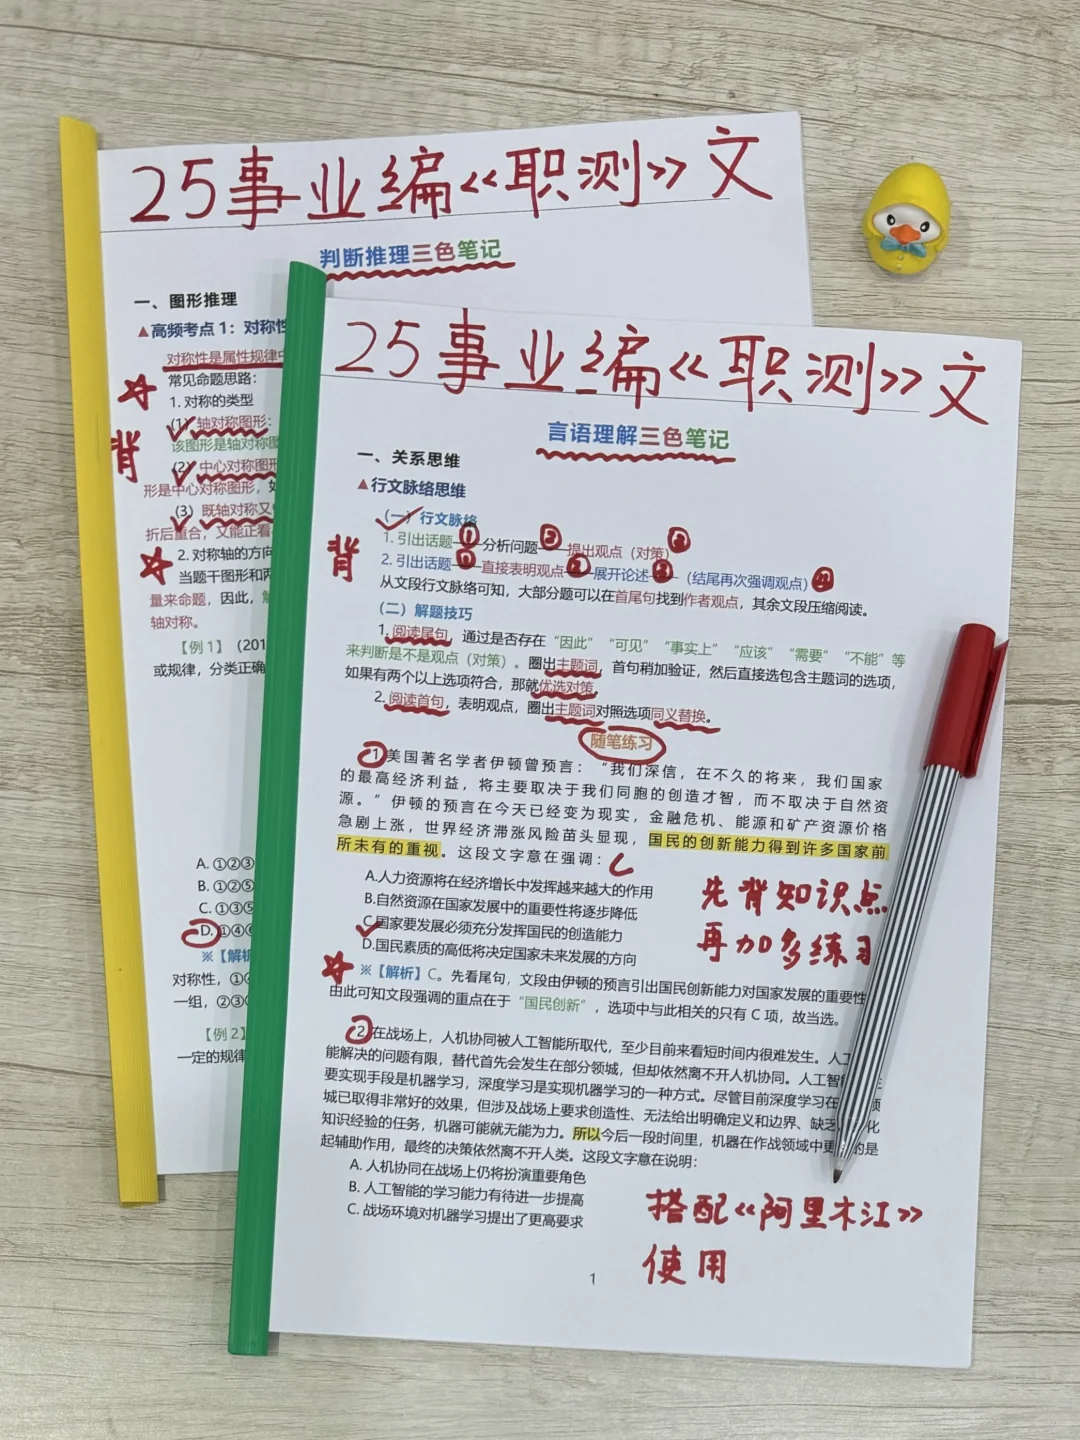 25事业编《职测》文
判断推理三色笔记
一、图形推理
▲高频考点1：对称性
对称性是属性规律中
常见命题思路：
1. 对称的类型
(1) 轴对称图形：
该图形是轴对称图
(2) 中心对称图形
形是中心对称图形，如
(3) 既轴对称又中
折后重合，又能正看
2. 对称轴的方向
当题干图形和两
量来命题，因此，
轴对称。
背
【例1】（201
或规律，分类正确
A. ①②③
B. ①②⑤
C. ①③⑤
D. ①④⑥
※【解析
对称性，①
一组，②③
【例2】
一定的规律
25事业编《职测》文
言语理解三色笔记
一、关系思维
▲行文脉络思维
（一）行文脉络
背
1. 引出话题—①—分析问题—②—提出观点（对策）③
2. 引出话题—①—直接表明观点—②—展开论述—③—（结尾再次强调观点）④
从文段行文脉络可知，大部分题可以在首尾句找到作者观点，其余文段压缩阅读。
（二）解题技巧
1. 阅读尾句，通过是否存在“因此”“可见”“事实上”“应该”“需要”“不能”等
来判断是不是观点（对策）。圈出主题词，首句稍加验证，然后直接选包含主题词的选项，
如果有两个以上选项符合，那就优选对策。
2. 阅读首句，表明观点，圈出主题词对照选项同义替换。
随笔练习
1 美国著名学者伊顿曾预言：“我们深信，在不久的将来，我们国家
的最高经济利益，将主要取决于我们同胞的创造才智，而不取决于自然资
源。”伊顿的预言在今天已经变为现实，金融危机、能源和矿产资源价格
急剧上涨，世界经济滞涨风险苗头显现，国民的创新能力得到许多国家前
所未有的重视。这段文字意在强调：C
A.人力资源将在经济增长中发挥越来越大的作用
B.自然资源在国家发展中的重要性将逐步降低
C.国家要发展必须充分发挥国民的创造能力
D.国民素质的高低将决定国家未来发展的方向
先背知识点
再加多练习
※【解析】C。先看尾句，文段由伊顿的预言引出国民创新能力对国家发展的重要性
由此可知文段强调的重点在于“国民创新”，选项中与此相关的只有 C 项，故当选。
2 在战场上，人机协同被人工智能所取代，至少目前来看短时间内很难发生。人工
能解决的问题有限，替代首先会发生在部分领域，但却依然离不开人机协同。人工智能
要实现手段是机器学习，深度学习是实现机器学习的一种方式。尽管目前深度学习在
城已取得非常好的效果，但涉及战场上要求创造性、无法给出明确定义和边界、缺乏 化
知识经验的任务，机器可能就无能为力。所以今后一段时间里，机器在作战领域中更 的是
起辅助作用，最终的决策依然离不开人类。这段文字意在说明：
A. 人机协同在战场上仍将扮演重要角色
B. 人工智能的学习能力有待进一步提高
C. 战场环境对机器学习提出了更高要求
搭配《阿里木江》
使用
1